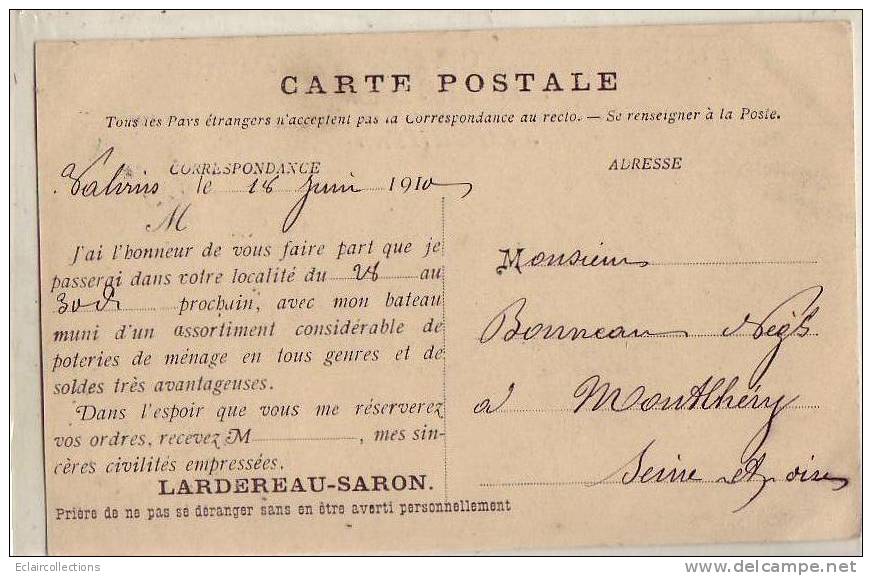 CARTE POSTALE
Tous les Pays étrangers n'acceptent pas la Correspondance au recto. — Se renseigner à la Poste.
CORRESPONDANCE
le 18 Juin 1910
M
J'ai l'honneur de vous faire part que je
passerai dans votre localité du 28 au
30 dt prochain, avec mon bateau
muni d'un assortiment considérable de
poteries de ménage en tous genres et de
soldes très avantageuses.
Dans l'espoir que vous me réserverez
vos ordres, recevez M , mes sin-
cères civilités empressées.
LARDEREAU-SARON.
Prière de ne pas se déranger sans en être averti personnellement
ADRESSE
Monsieur
Bonneau Négt
à Montlhéry
Seine et oise
Eclaircollections
delcampe.net